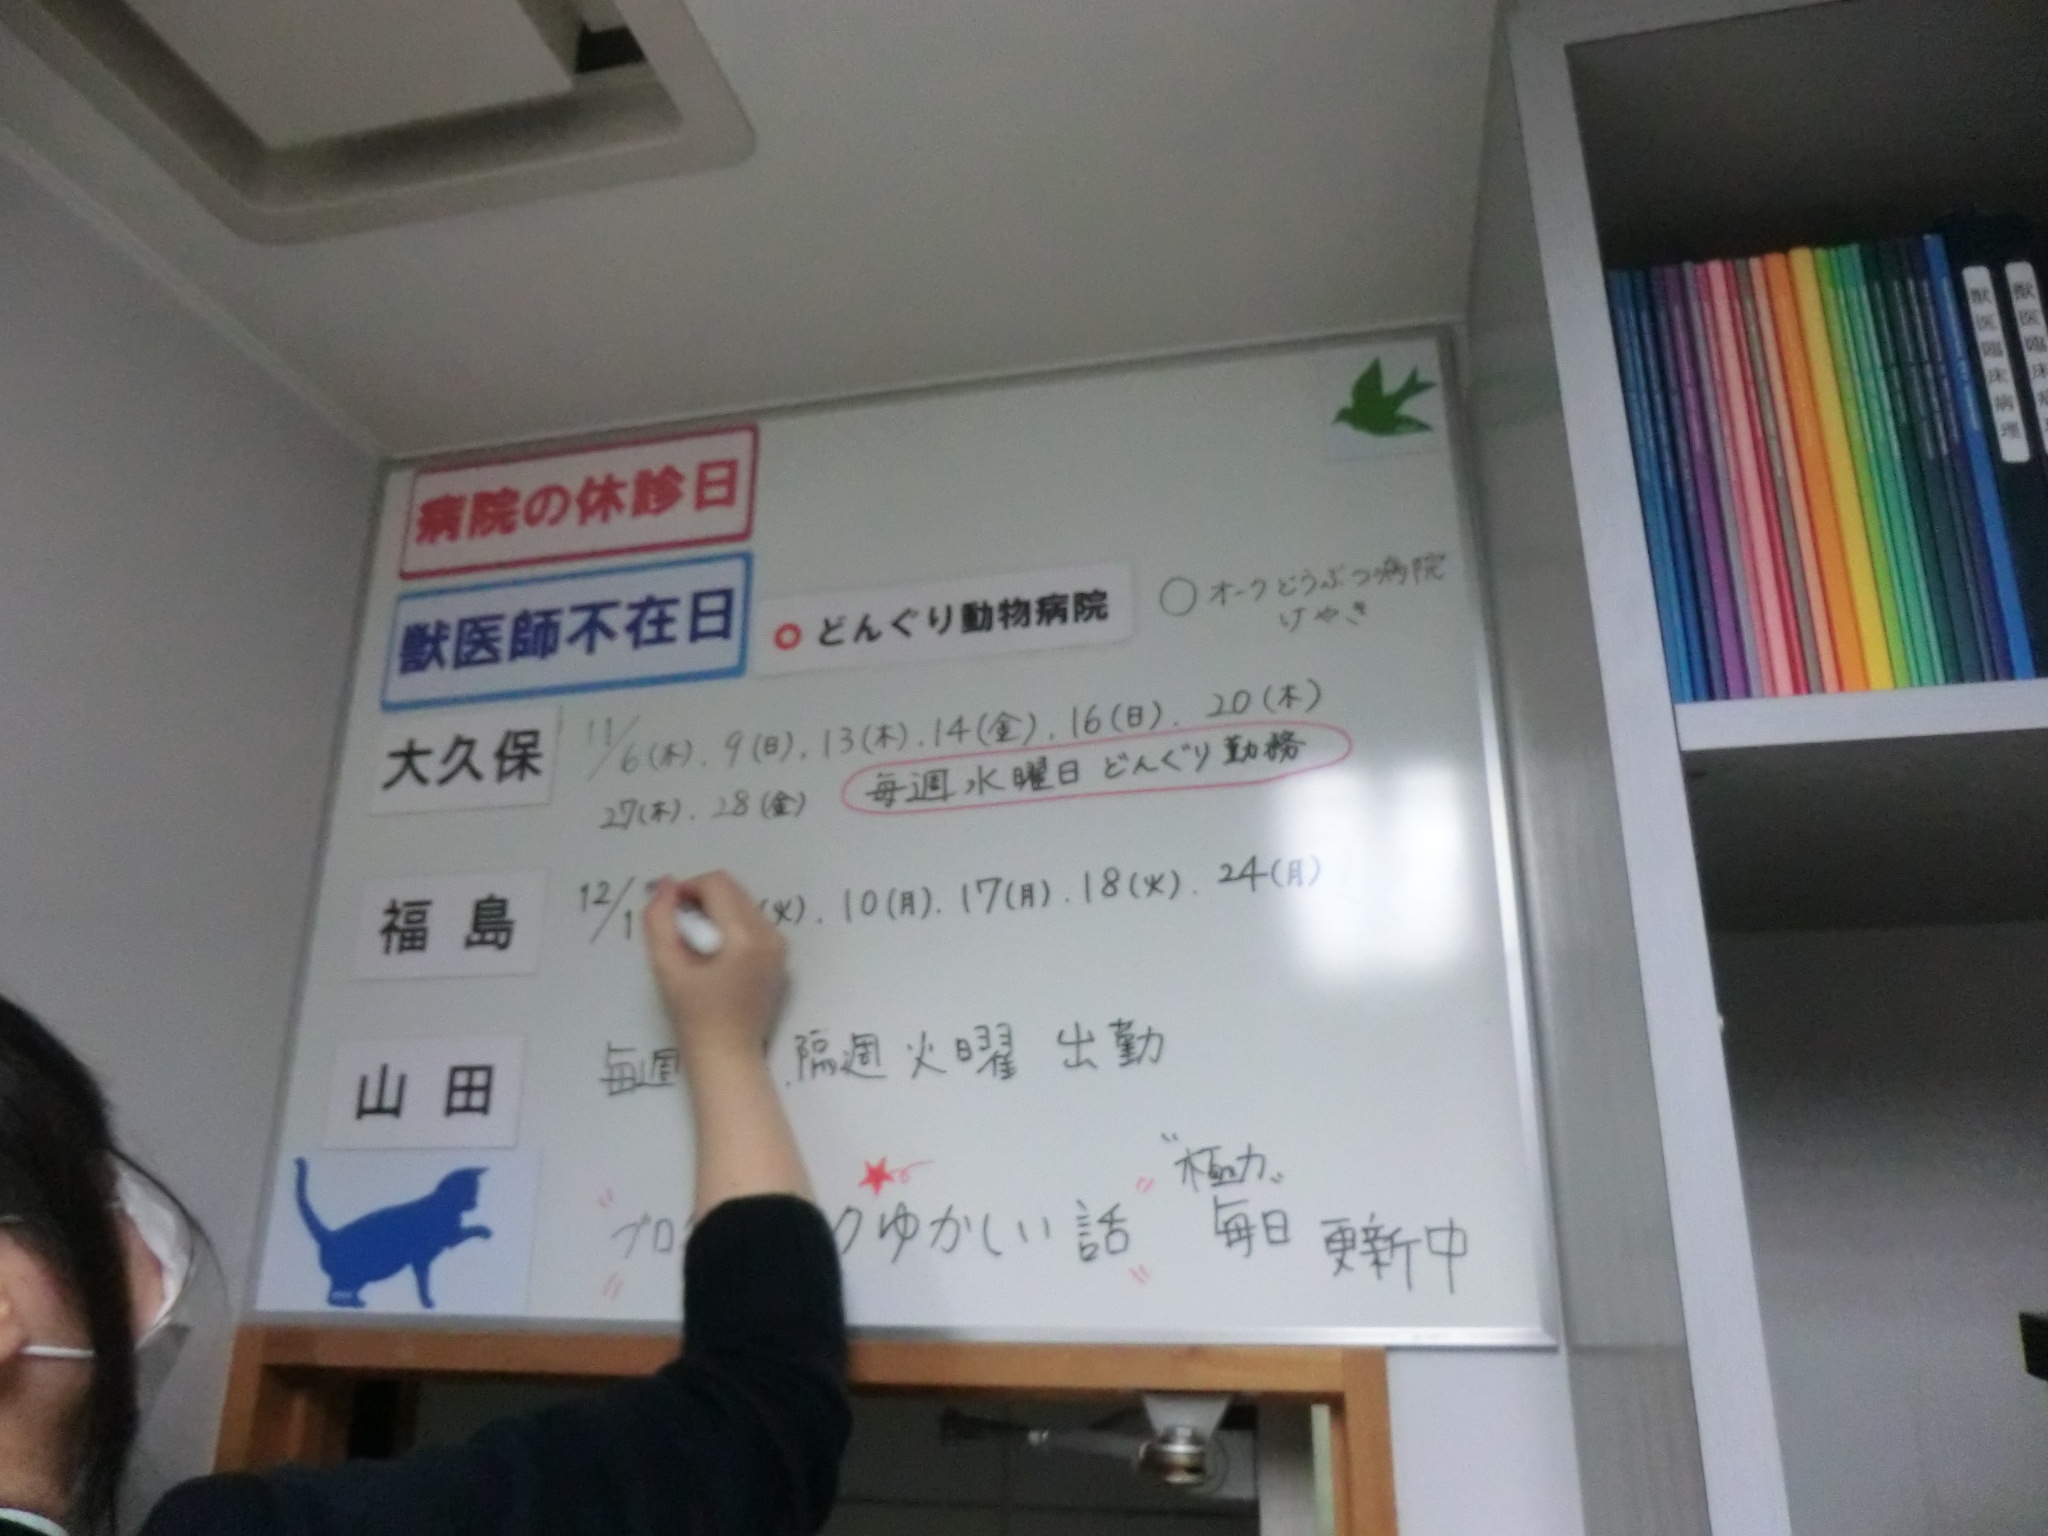 病院の休診日
獣医師不在日
どんぐり動物病院
○ オークどうぶつ病院
けやき
大久保
11/6(木).9(日).13(木).14(金).16(日).20(木)
27(木).28(金)
毎週水曜日 どんぐり勤務
福島
12/1
(火).10(月).17(月).18(火).24(月)
山田
毎週
隔週 火曜 出勤
"ブロ
クゆかしい話"
"極力"
毎日 更新中
獣医臨床病理
獣医臨床病理